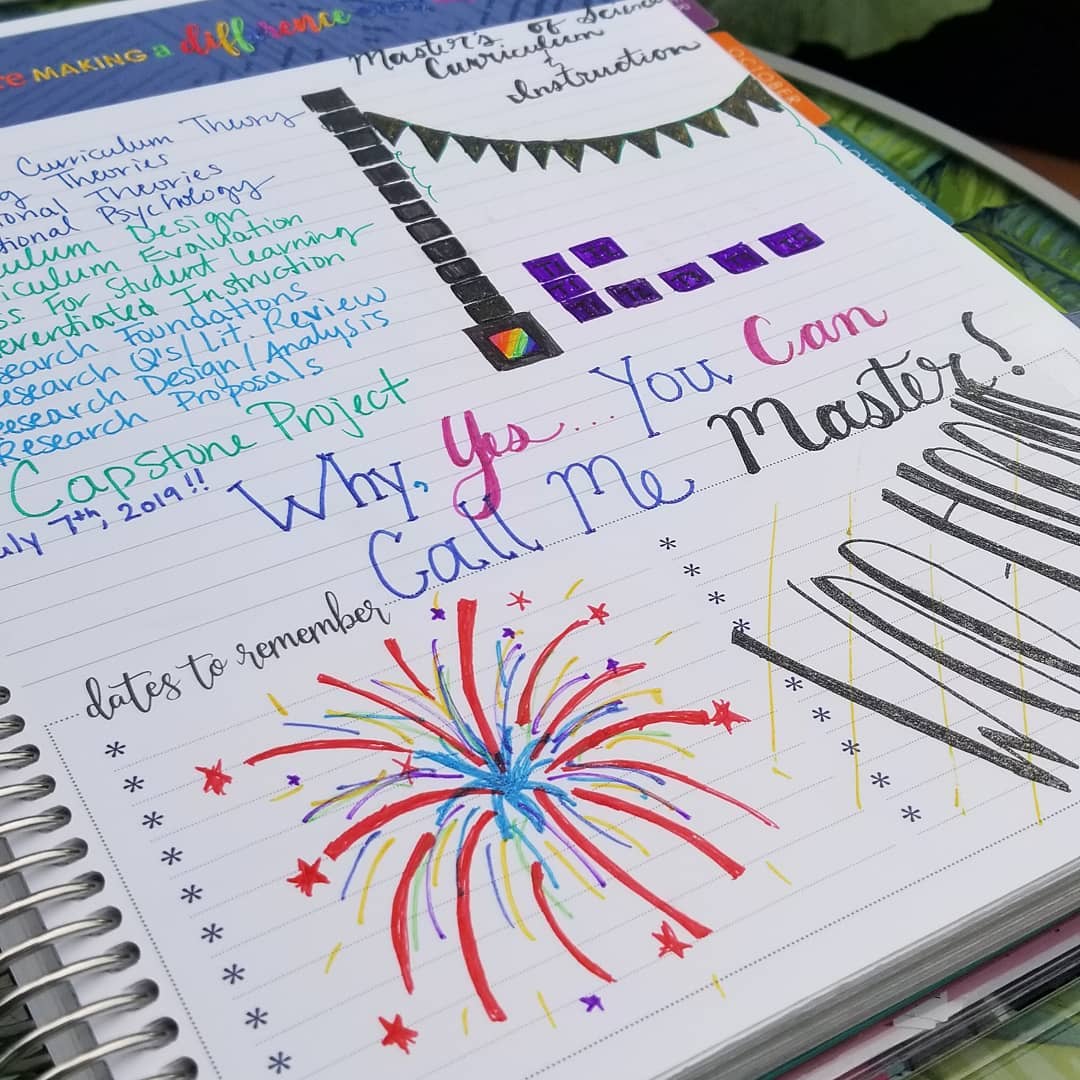 MAKING a difference
Master's of Science
Curriculum
+
Instruction
OCTOBER
NOVEMBER
Curriculum Theory
g Theories
ional Theories
tional Psychology
culum Design
iculum Evaluation
ss For Student Learning
erentiated Instruction
search Foundations
esearch Q's/Lit. Review
Research Design/Analysis
Research Proposals
Capstone Project
uly 7th, 2019!!
Why, Yes... You Can
Call Me Master!
dates to remember